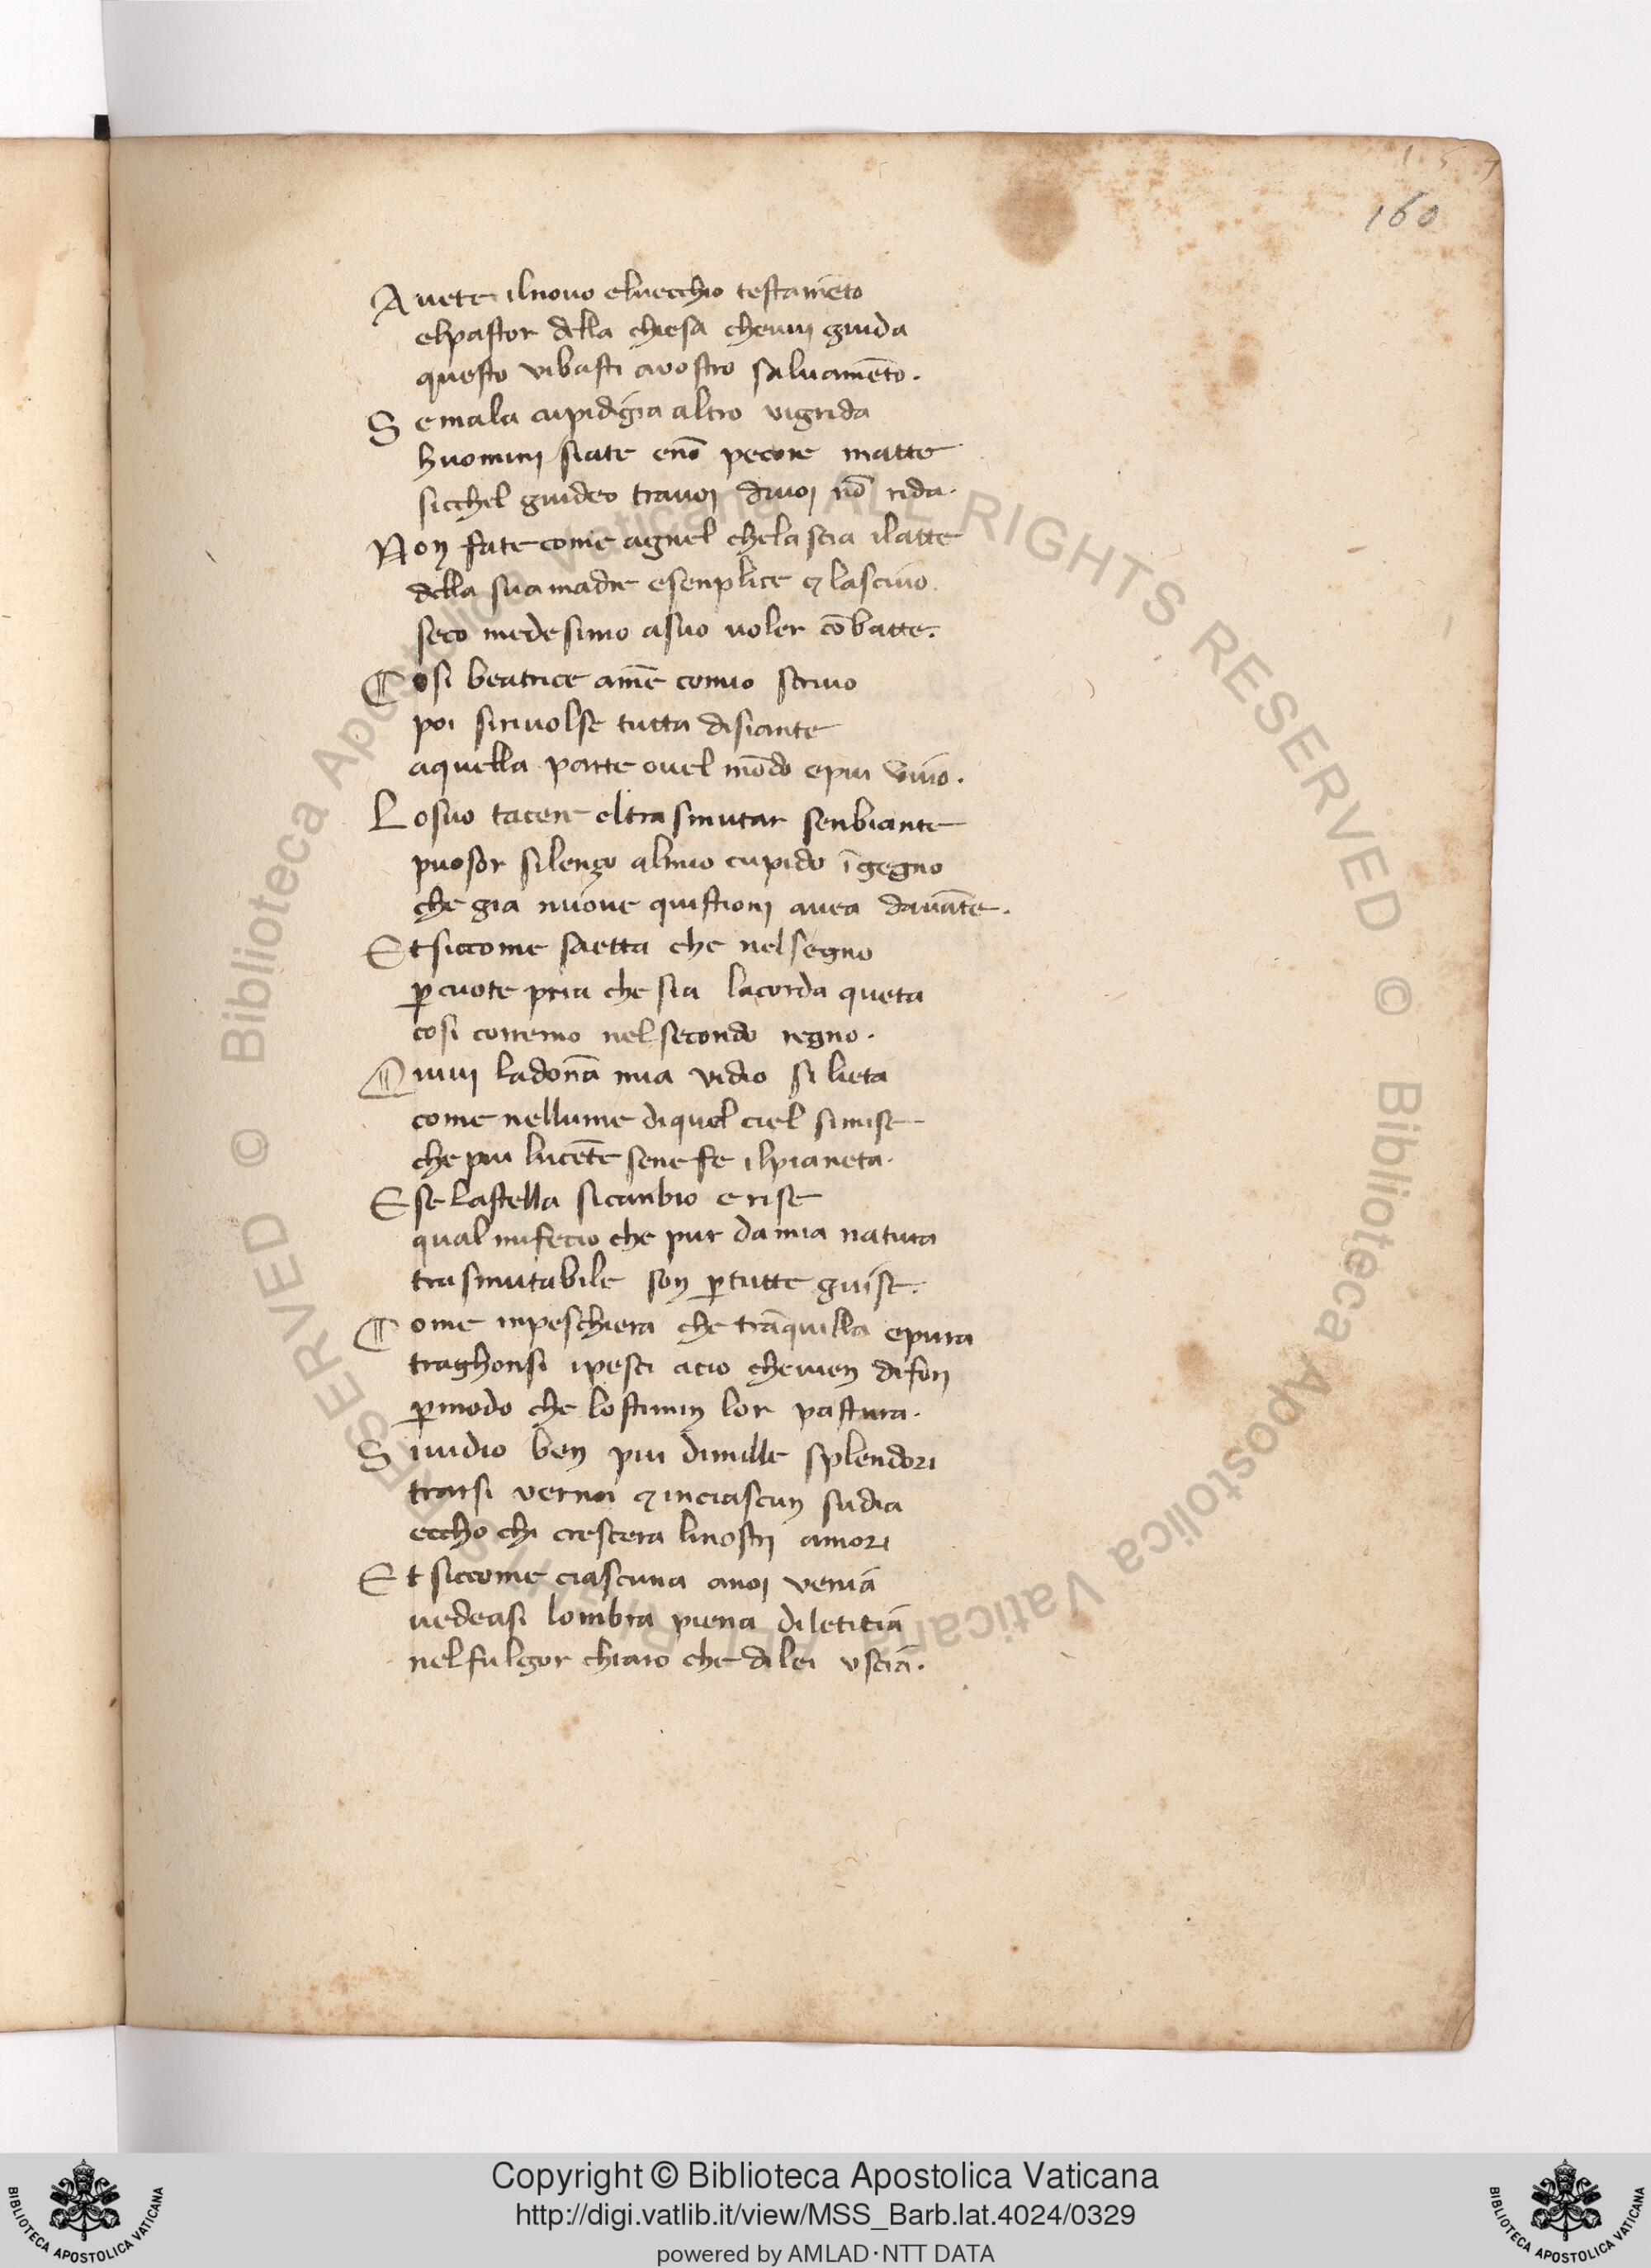 157
160
Avete ilnovo eluecchio testam̄eto
elpastor della chiesa cheuui guida
questo vibasti auostro saluamēto.
Semala cupidigia altro vigrida
huominj siate enō pecore matte
sicchel guideo trauoj diuoj nō rida.
Non fate come agnel chelascia ilatte
della sua madre esenplice & lasciuo
seco medesimo asuo uoler cōbatte.
Cosi beatrice amē comio scriuo
poi siriuolse tutta disiante
aquella parte ouel mōdo epiu viuo.
Losuo tacere eltrasmutar senbiante
puosor silenço almio cupido īgegno
che gia nuoue quistionj auea dauāte.
Etsiccome saetta che nelsegno
ꝑcuote pria che sia lacorda queta
cosi corremo nelsecondo regno.
Quiui ladonā mia vidio si lieta
come nellume diquel ciel simise
che piu lucēte sene fe ilpianeta.
Ese lastella sicanbio erise
qual mifecio che pur damia natura
trasmutabile son ꝑtutte guise.
Come inpeschiera che trāquilla epura
traghonsi ipesci acio cheuien difori
ꝑmodo che lostimin lor pastura.
Siuidio ben piu dimille splendori
trarsi vernoi & inciascun sudia
eccho chi crescera linostrj amori
Et siccome ciascuna anoj venia
uedeasi lombra piena diletitia
nelfulgor chiaro che dilei vscia.
© Biblioteca Apostolica Vaticana ALL RIGHTS RESERVED
© Biblioteca Apostolica Vaticana ALL RIGHTS RESERVED
Copyright © Biblioteca Apostolica Vaticana
http://digi.vatlib.it/view/MSS_Barb.lat.4024/0329
powered by AMLAD·NTT DATA
BIBLIOTECA APOSTOLICA VATICANA
BIBLIOTECA APOSTOLICA VATICANA